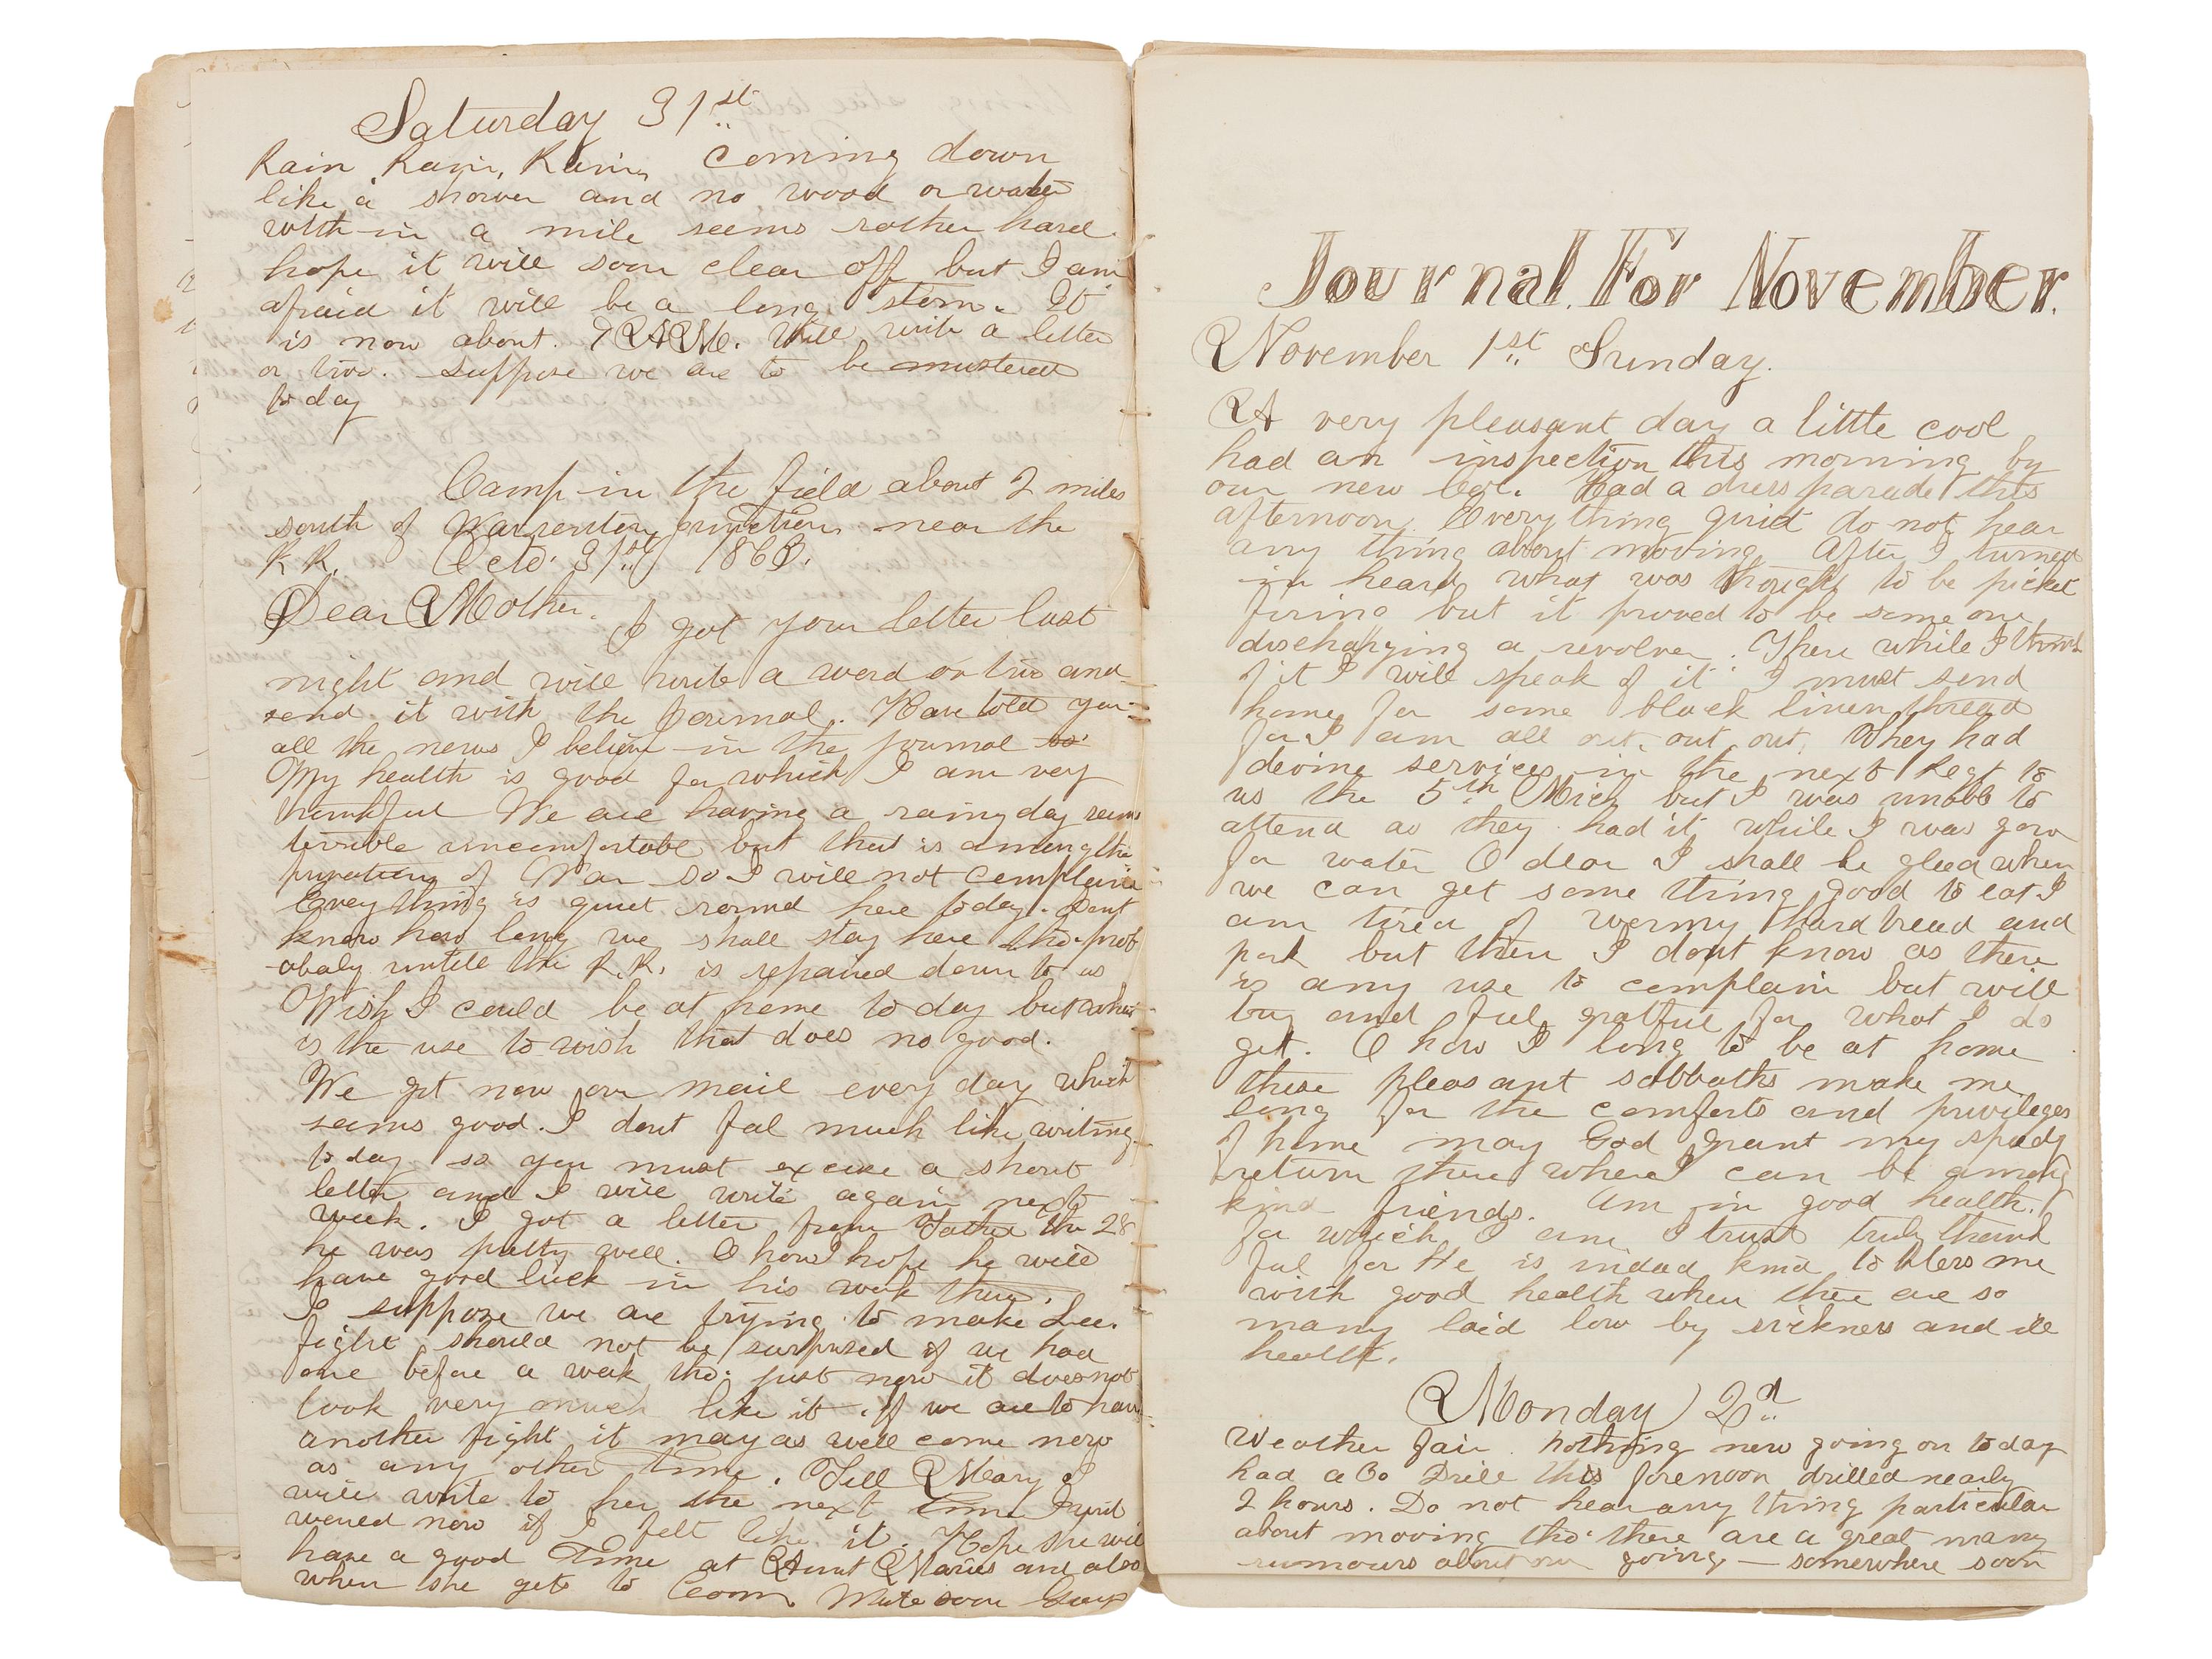 Saturday 31st
Rain, Rain, Rain, coming down
like a shower and no wood or water
with-in a mile seems rather hard.
hope it will soon clear off but I am
afraid it will be a long storm. It
is now about 9 A.M. Will write a letter
or two. Suppose we are to be mustered
to day
Camp in the field about 2 miles
south of Warrenton Junction near the
R.R. Octo. 31st 1863.
Dear Mother. I got your letter last
night and will write a word or two and
send it with the Journal. Have told you
all the news I believe in the journal
My health is good for which I am very
thankful We are having a rainy day seems
terrible uncomfortabl but that is among the
privations of War so I will not complain
Every thing is quiet round here today. Dont
know how long we shall stay here tho. prob
abaly untill the R.R. is repaired down to us
Wish I could be at home to day but what
is the use to wish that does no good.
We get now our mail every day which
seems good. I dont feel much like writing
to day so you must excuse a short
letter and I will write again next
week. I got a letter from Father the 28
he was pretty well. O how I hope he will
have good luck in his work there.
I suppose we are trying to make Lee.
fight should not be surprised if we had
one before a week tho. just now it does not
look very much like it. If we are to have
another fight it may as well come now
as any other time. Tell Mary I
will write to her the next time I
would now if I felt like it. Hope she will
have a good time at Aunt Maries and also
when she gets to Conn. Write soon
Journal. For November.
November 1st Sunday.
A very pleasant day a little cool
had an inspection this morning by
our new Col. Had a dress parade this
afternoon. Every thing quiet do not hear
any thing about moving. After I turned
in heard what was thought to be picket
firing but it proved to be some one
discharging a revolver. There while I think
of it I will speak of it. I must send
home for some black linen thread
for I am all out, out, out. They had
devine services in the next Regt to
us the 5th Mich but I was unable to
attend as they had it while I was gone
for water O dear I shall be glad when
we can get some thing good to eat I
am tired of wormy hard bread and
pork but then I dont know as there
is any use to complain but will
try and feel gratful for what I do
get. O how I long to be at home
these pleasant sabbaths make me
long for the comforts and privileges
of home may God grant my speedy
return there where I can be among
kind friends. Am in good health.
for which I am I trust truly thank
ful for He is indeed kind to bless me
with good health when there are so
many laid low by sickness and ill
health.
Monday 2d
Weather fair. Nothing new going on today
had a Co Drill this forenoon drilled nearly
2 hours. Do not hear any thing particular
about moving tho. there are a great many
rumours about our going — somewhere soon